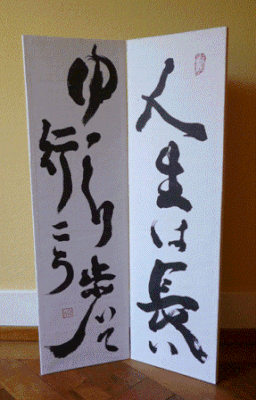 人生は長い
ゆっくり歩いて
行こう